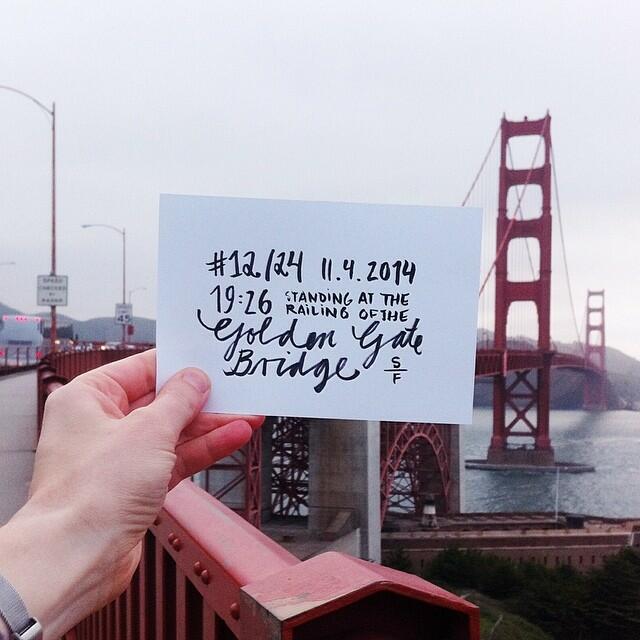 #12/24 11.4.2014
19:26 STANDING AT THE
RAILING OF THE
Golden Gate
Bridge S/F
SPEED
CHECKED
BY
RADAR
45